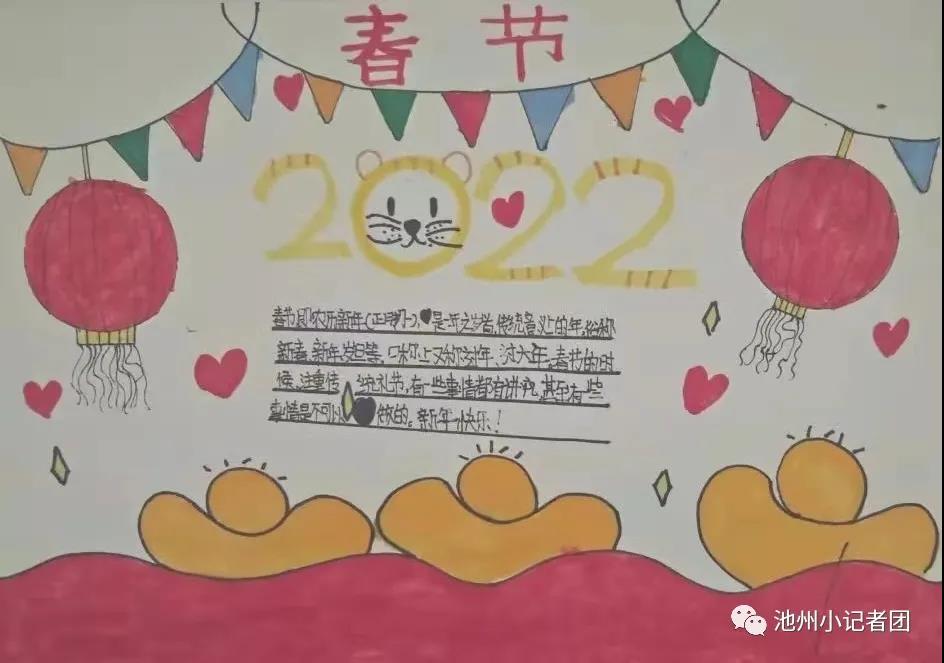 春节
2022
春节即农历新年(正月初一),是一年之岁首,传统意义上的年,俗称
新春、新年、岁旦等,口称上又称过年、过大年,春节的时
候,注重传统礼节,有一些事情都有讲究,甚至有一些
事情是不可以做的。新年快乐!
池州小记者团